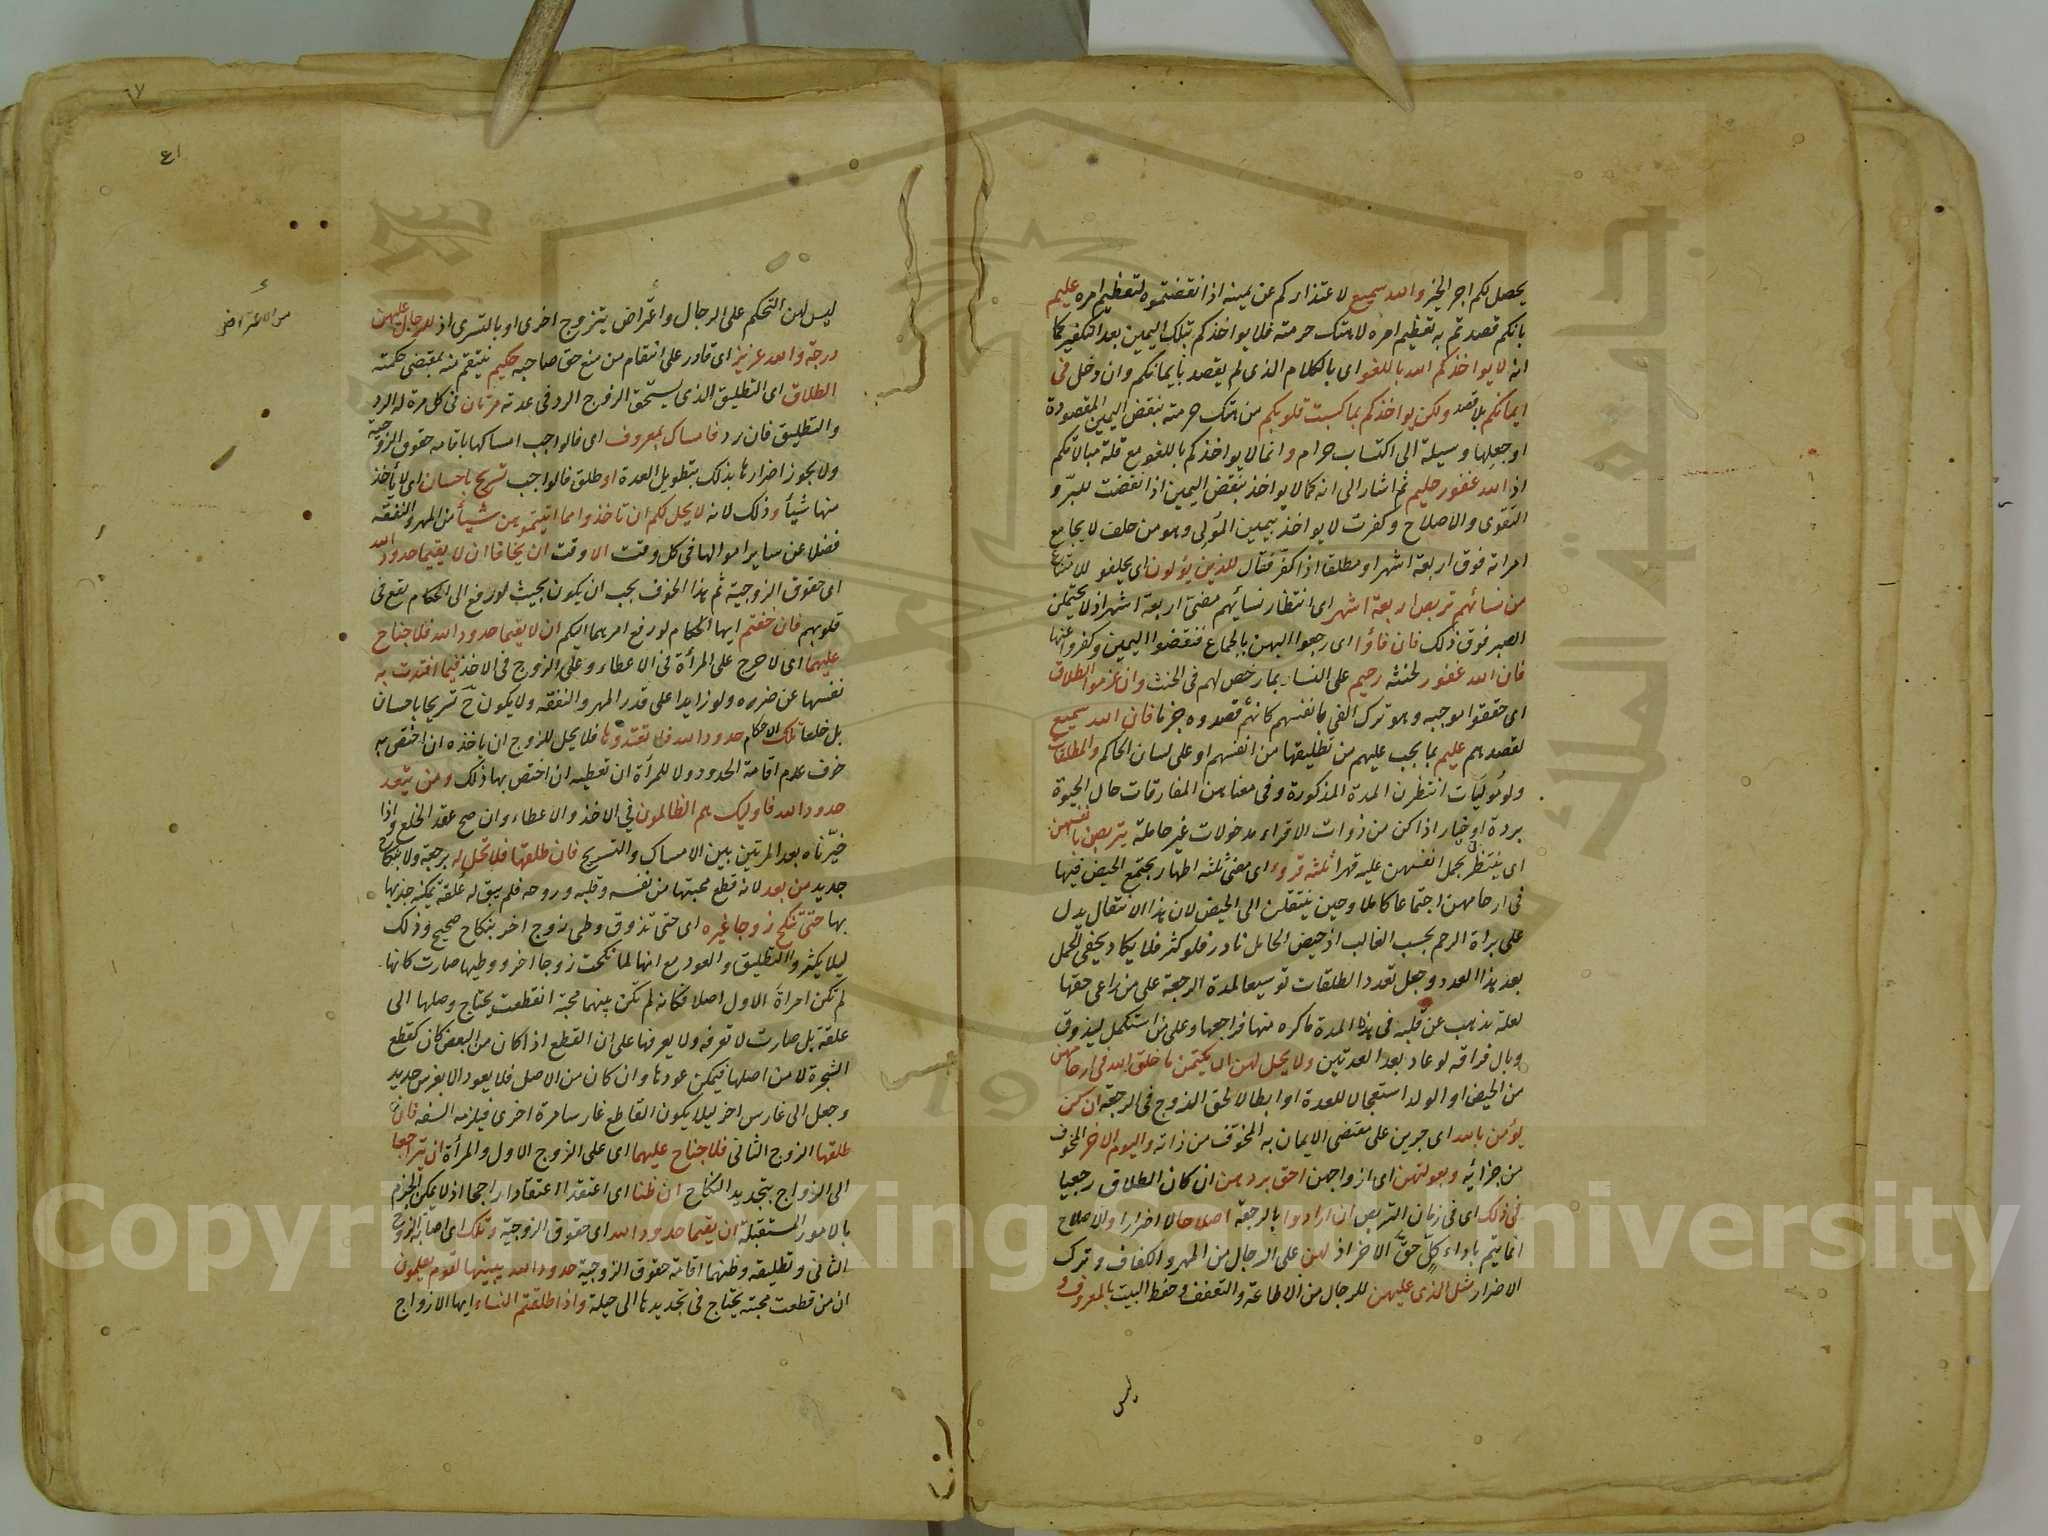 يحصل لكم اجر الخير والله سميع لاعتذاركم عن يمينه اذا نقضتموه لتعظيم امره عليم
بانكم قصدتم به تعظيم امره لا هتك حرمته فلا يواخذكم بتلك اليمين بعد التكفير كما
انه لا يواخذكم الله باللغو اى بالكلام الذى لم يقصد بايمانكم وان دخل فى
ايمانكم بلا قصد ولكن يواخذكم بما كسبت قلوبكم من هتك حرمته بنقض اليمين المقصودة
او جعلها وسيلة الى اكتساب حرام وانما لا يواخذكم باللغو مع قلة مبالاتكم
اذ الله غفور حليم ثم اشار الى انه كما لا يواخذ بنقض اليمين اذا نقضت للبر و
التقوى والاصلاح وكفرت لا يواخذ بيمين المؤلى وهو من حلف لا يجامع
امراته فوق اربعة اشهر او مطلقا اذا كفر فقال للذين يؤلون اى يحلفو للامتناع
من نسائهم تربص اربعة اشهر اى انتظار نسائهم مضى اربعة اشهر اذ لا يحتملن
الصبر فوق ذلك فان فاؤا اى رجعوا اليهن بالجماع فنقضوا اليمين وكفروا عنها
فان الله غفور لحنثه رحيم على النساء بما رخص لهم فى الحنث وان عزموا الطلاق
اى حققوا موجبه وهو ترك الفى بانفسهم كانهم قصدوه جزما فان الله سميع
لقصدهم عليم بما يجب عليهم من تطليقها من انفسهم او على لسان الحاكم والمطلقات
ولو موليات انتظرن المدة المذكورة وفى معناهن المفارقات حال الحيوة
بردة او خيار اذا كن من ذوات الاقراء مدخولات غير حاملة يتربصن بانفسهن
اى ينتظرن بحمل انفسهن عليه قهرا ثلثه قروء اى مضى ثلثه اطهار يجتمع الحيض فيها
فى ارحامهن اجتماعا كاملا وحين ينتقلن الى الحيض لان هذا الانتقال يدل
على براة الرحم بحسب الغالب اذ حيض الحامل نادر فلو كثر فلا يكاد يخفى الحمل
بعد هذا العدد وجعل تعدد الطلقات توسيعا لمدة الرجعة على من راعى حقها
لعله يذهب عن قلبه فى هذه المدة ما كره منها فراجعها وعلى من استكمل ليذوق
وبال فراقه لو عاد بعد العدتين ولا يحل لهن ان يكتمن ما خلق الله فى ارحامهن
من الحيض او الولد استعجالا للعدة او ابطالا لحق الزوج فى الرجعة ان كن
يؤمن بالله اى جرين على مقتضى الايمان به المخوف من ذاته واليوم الاخر المخوف
من جزائه وبعولتهن اى ازواجهن احق بردهن ان كان الطلاق رجعيا
فى ذلك اى فى زمان التربص ان ارادوا بالرجعة اصلاحا لا اضرارا والاصلاح
انما يتم باداء كل حق الاخر اذ لهن على الرجال من المهر والكفاف وترك
الاضرار مثل الذى عليهن للرجال من الاطاعة والتعفف وحفظ البيت بالمعروف و
ليس
٦٧
٤١
من الاعتراض
ليس لهن التحكم على الرجال واعتراض بتزوج اخرى او بالتسرى اذ للرجال عليهن
درجة والله عزيز اى قادر على انتقام من منع حق صاحبه حكيم ينتقم منه بمقتضى حكمته
الطلاق اى التطليق الذى يستحق الزوج الرد فى عدته مرتان فى كل مرة له الرد
والتطليق فان رد فامساك بمعروف اى فالواجب امساكها باقامه حقوق الزوجية
ولا يجوز اضرارها بذلك بتطويل العدة او طلق فالواجب تسريح باحسان اى لا ياخذ
منها شيأ وذلك لانه لا يحل لكم ان تاخذوا مما اتيتموهن شيأ من المهر والنفقه
فضلا عن ساير اموالها فى كل وقت الا وقت ان يخافا ان لا يقيما حدود الله
اى حقوق الزوجية ثم هذا الخوف يجب ان يكون بحيث لو رفع الى الحكام يقع فى
قلوبهم فان خفتم ايها الحكام لو رفع امرهما اليكم ان لا يقيما حدود الله فلا جناح
عليهما اى لا حرج على المرأة فى الاعطاء وعلى الزوج فى الاخذ فيما افتدت به
نفسها عن ضرره ولو زايدا على قدر المهر والنفقه ولا يكون ح تسريحا باحسان
بل خلعا تلك الاحكام حدود الله فلا تعتدوها فلا يحل للزوج ان ياخذه ان اختص به
خوف عدم اقامة الحدود ولا للمرأة ان تعطيه ان اختص بها ذلك ومن يتعد
حدود الله فاوليك هم الظالمون فى الاخذ والاعطاء وان صح عقد الخلع واذا
خيرناه بعد المرتين بين الامساك والتسريح فان طلقها فلا تحل له برجعة ولا بنكاح
جديد من بعد لانه قطع محبتها من نفسه وقلبه وروحه فلم يبق له علقة يمكنه جذبها
بها حتى تنكح زوجا غيره اى حتى تذوق وطى زوج اخر بنكاح صحيح وذلك
ليلا يكثروا التطليق والعود مع انها لما نكحت زوجا اخر ووطيها صارت كانها
لم تكن امراة الاول اصلا فكانه لم تكن بينهما محبة انقطعت يحتاج وصلها الى
علقة بل صارت لا تعرفه ولا يعرفها على ان القطع اذا كان من البعض كان كقطع
الشجرة لا من اصلها فيمكن عودها وان كان من الاصل فلا يعود الا بغرس جديد
وجعل الى غارس اخر ليلا يكون القاطع غارسا مرة اخرى فيلزمه السفه فان
طلقها الزوج الثانى فلا جناح عليهما اى على الزوج الاول والمرأة ان يتراجعا
الى الزواج بتجديد النكاح ان ظنا اى اعتقدا اعتقادا راجحا اذ لا يمكن الجزم
بالامور المستقبلة ان يقيما حدود الله اى حقوق الزوجية وتلك اى اصابة الزوج
الثانى وتطليقه وظنهما اقامة حقوق الزوجية حدود الله يبينها لقوم يعلمون
ان من قطعت محبته يحتاج فى تجديدها الى حيلة واذا طلقتم النساء ايها الازواج
Copyright © King Saud University